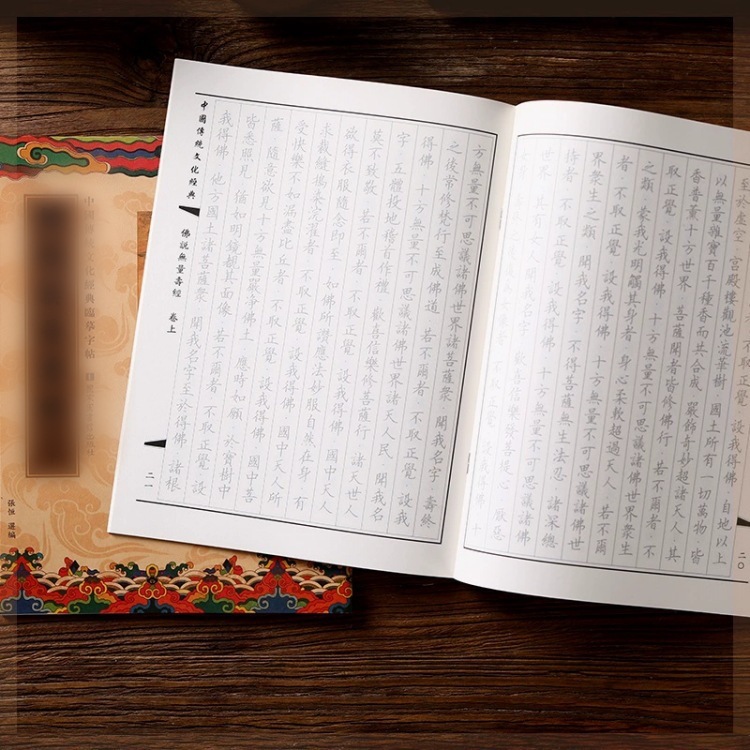 二〇
不取正覺 設我得佛 自地以上
至於虛空 宮殿樓觀池流華樹 國土所有一切萬物 皆
以無量雜寶百千種香而共合成 嚴飾奇妙超諸天人 其
香普薰十方世界 菩薩聞者皆修佛行 若不爾者 不
取正覺 設我得佛 十方無量不可思議諸佛世界衆生
之類 蒙我光明觸其身者 身心柔軟超過天人 若不爾
者 不取正覺 設我得佛 十方無量不可思議諸佛世
界衆生之類 聞我名字 不得菩薩無生法忍 諸深總
持者 不取正覺 設我得佛 十方無量不可思議諸佛
世界 其有女人聞我名字 歡喜信樂發菩提心 厭惡
不取正覺 設我得佛 十
方無量不可思議諸佛世界諸菩薩衆 聞我名字 壽終
之後常修梵行至成佛道 若不爾者 不取正覺 設我
得佛 十方無量不可思議諸佛世界諸天人民 聞我名
字 五體投地稽首作禮 歡喜信樂修菩薩行 諸天世人
莫不致敬 若不爾者 不取正覺 設我得佛 國中天人
欲得衣服隨念即至 如佛所讚應法妙服自然在身 有
求裁縫搗染浣濯者 不取正覺 設我得佛 國中天人所
受快樂不如漏盡比丘者 不取正覺 設我得佛 國中菩
薩 隨意欲見十方無量嚴淨佛土 應時如願 於寶樹中
皆悉照見 猶如明鏡覩其面像 若不爾者 不取正覺 設
我得佛 他方國土諸菩薩衆 聞我名字至於得佛 諸根
中國傳統文化經典 佛說無量壽經 卷上
二一
中國傳統文化經典臨摹字帖
張恒 選編